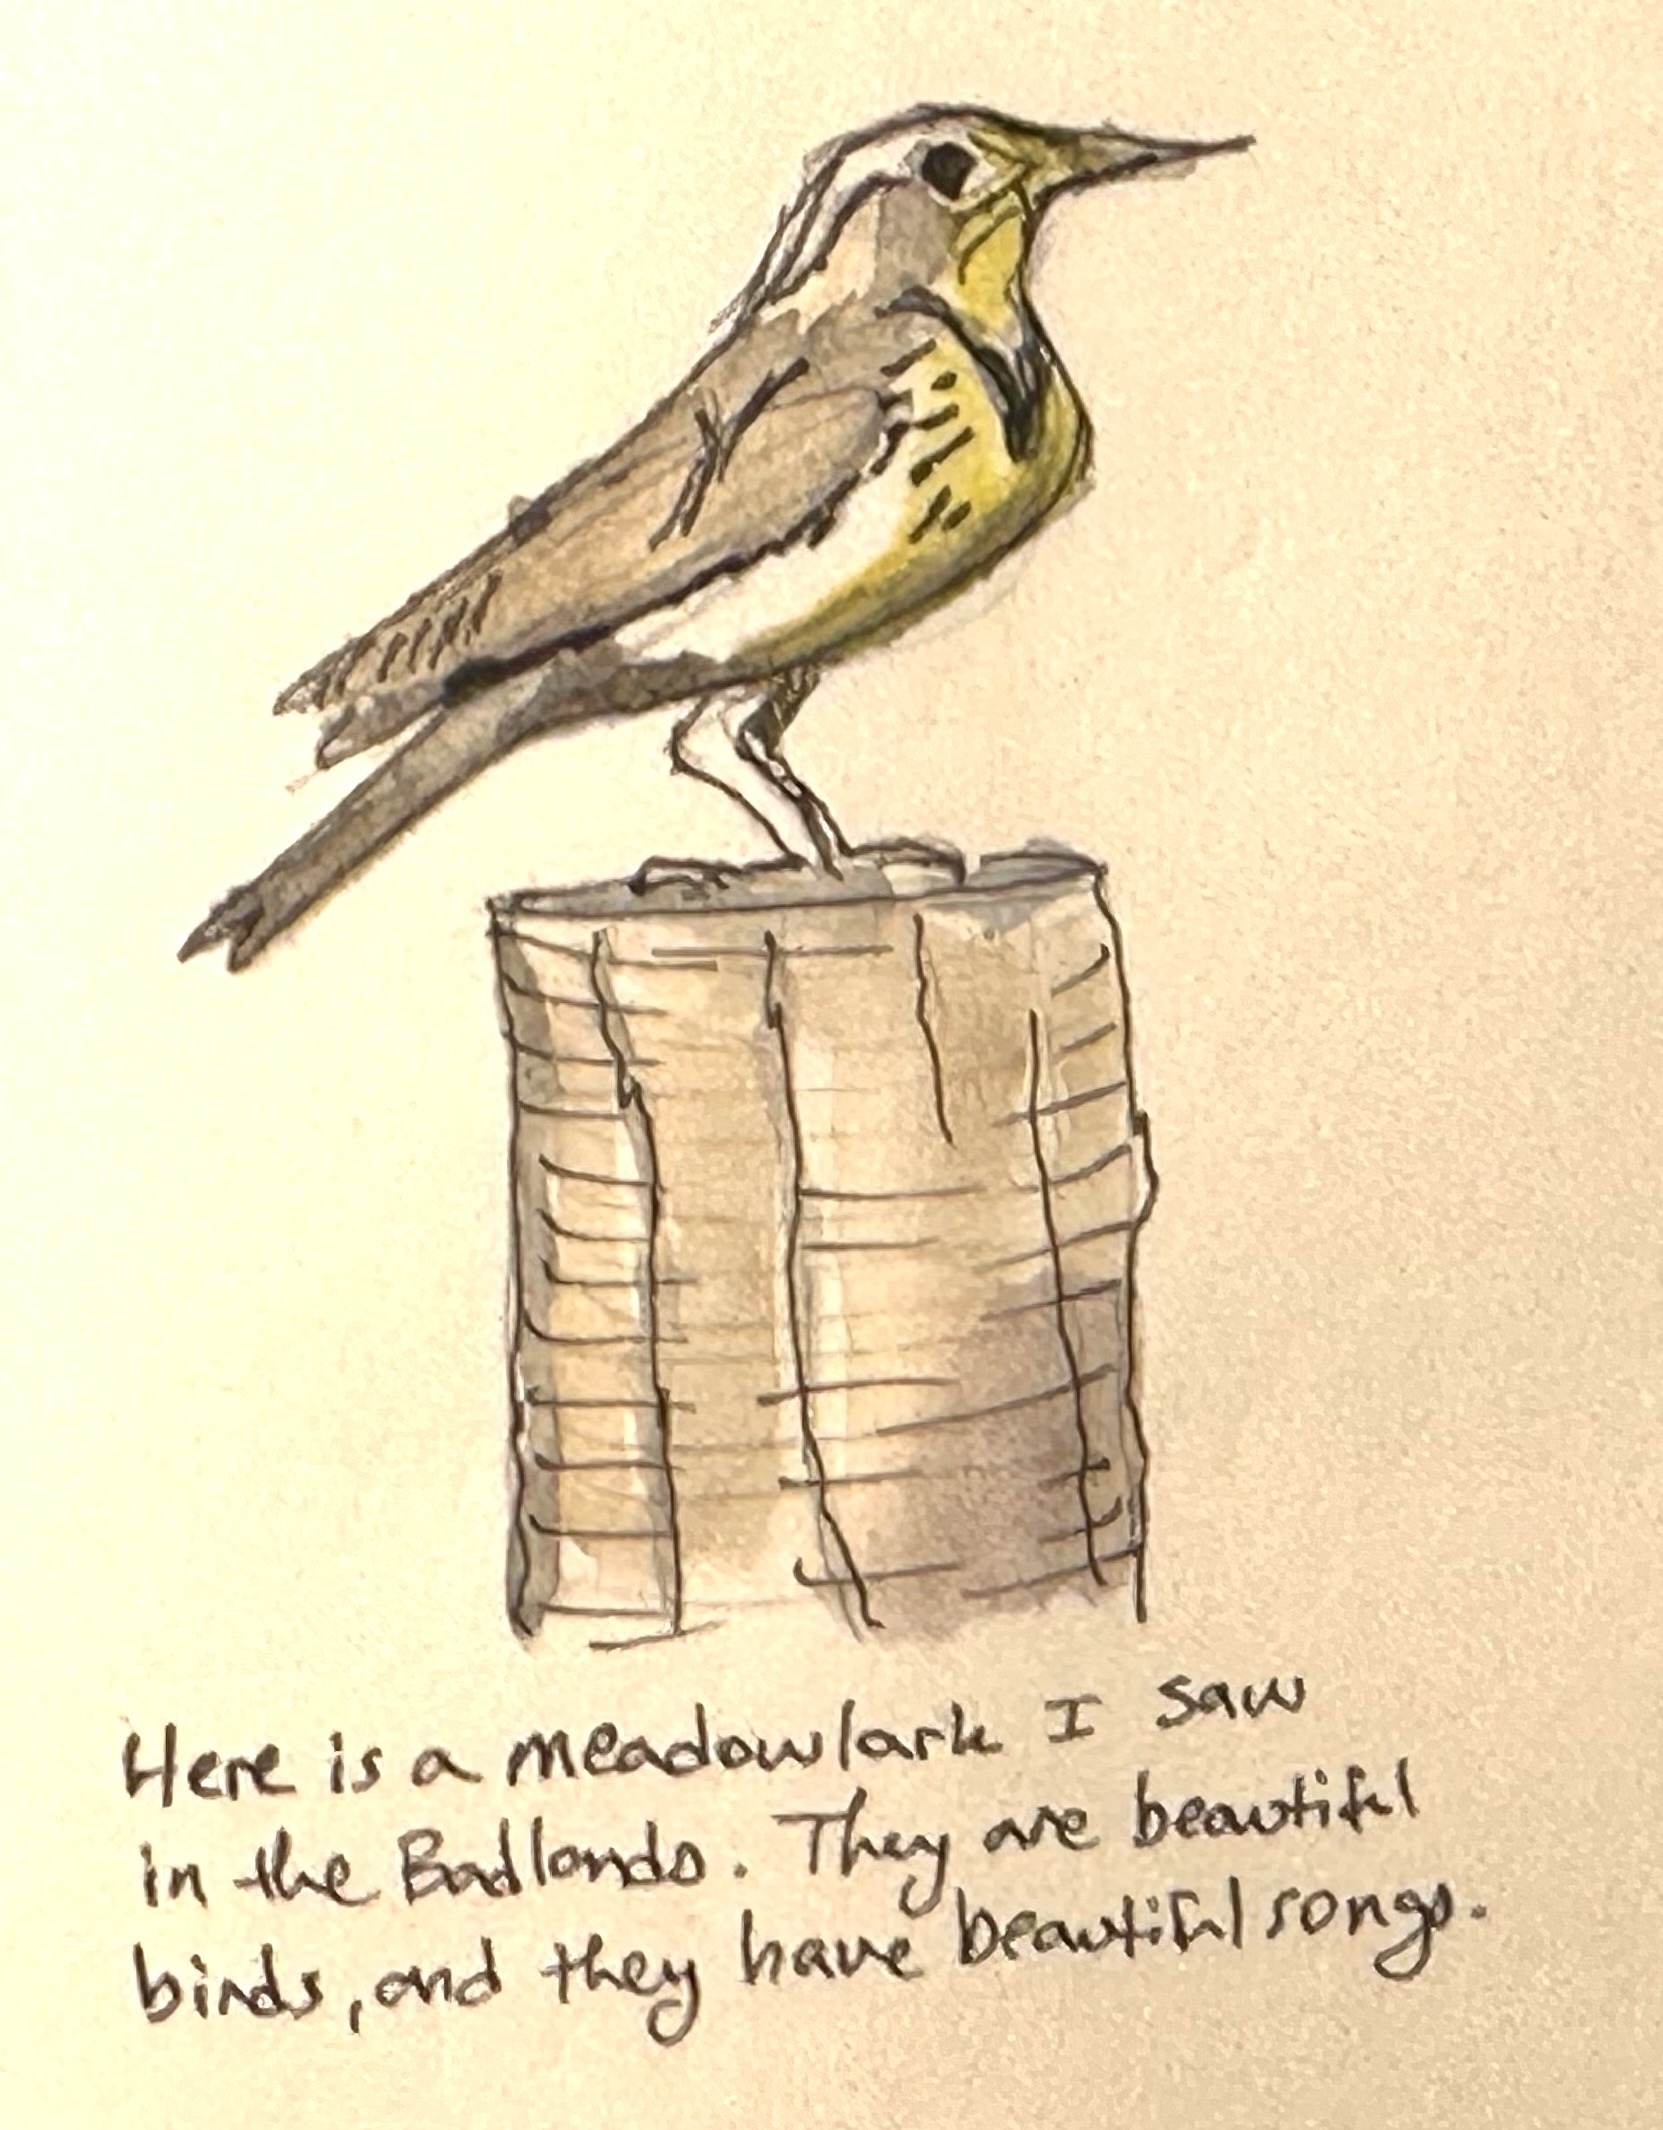 Here is a meadowlark I saw
in the Badlands. They are beautiful
birds, and they have beautiful songs.